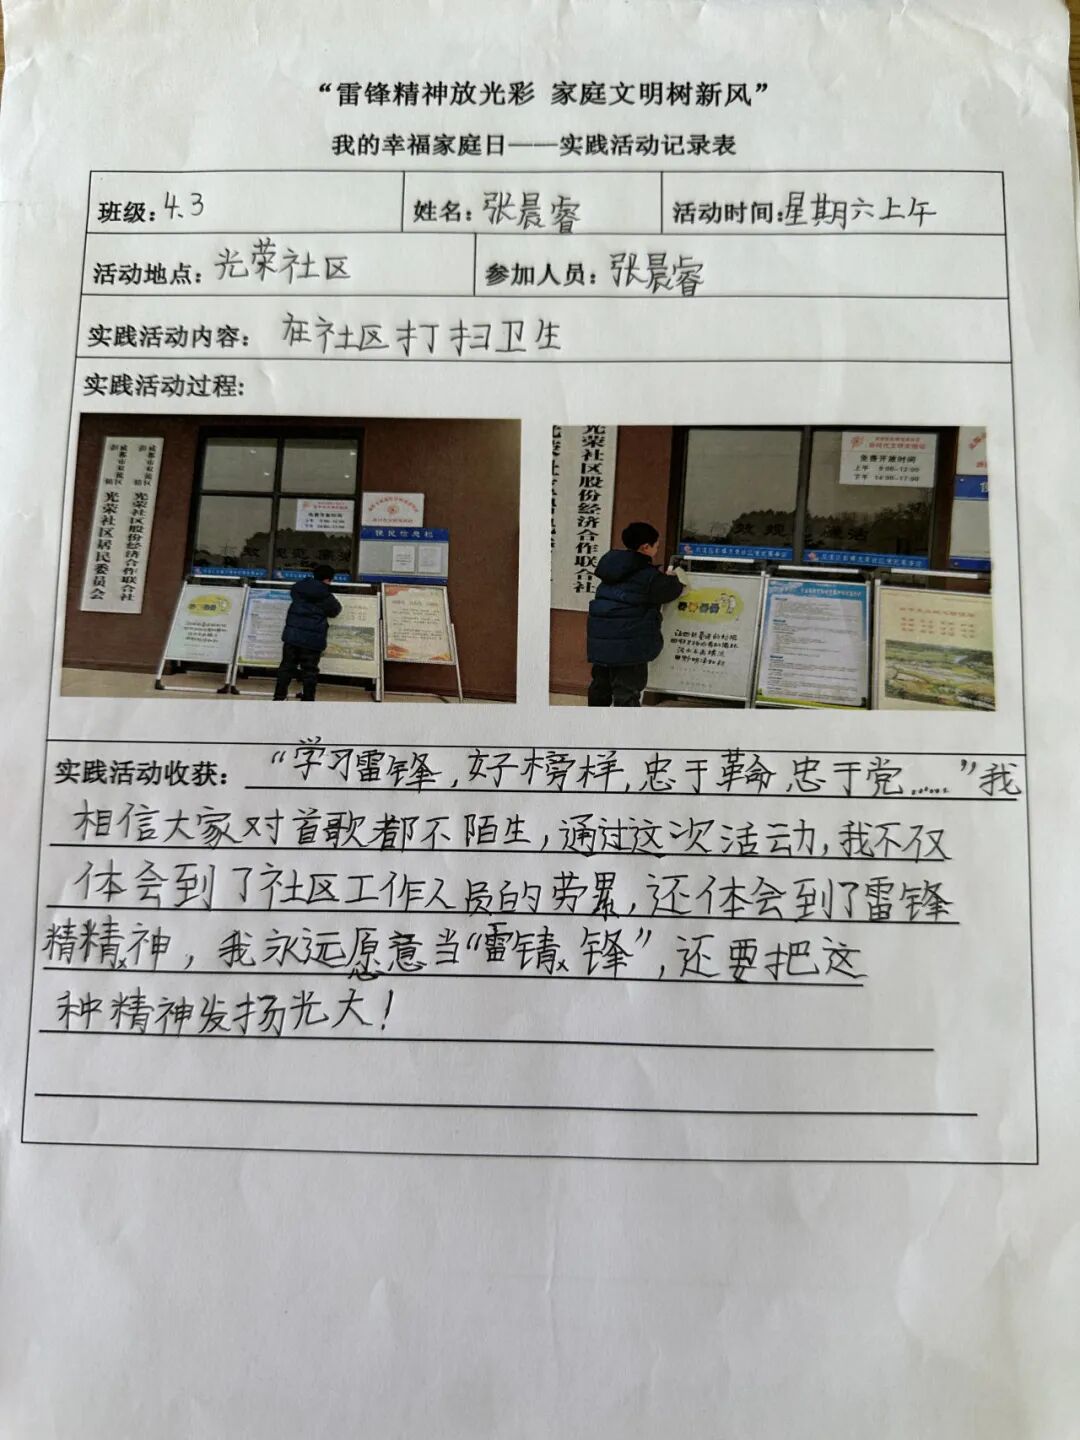 “雷锋精神放光彩 家庭文明树新风”
我的幸福家庭日——实践活动记录表
班级：4.3 姓名：张晨睿 活动时间：星期六上午
活动地点：光荣社区 参加人员：张晨睿
实践活动内容： 在社区打扫卫生
实践活动过程：
光荣社区居民委员会
光荣社区股份经济合作联合社
便民信息栏
光荣社区股份经济合作联合社
免费开放时间
上午 9:00-12:00
下午 14:00-17:00
实践活动收获： “学习雷锋，好榜样，忠于革命 忠于党……”我
相信大家对首歌都不陌生，通过这次活动，我不仅
体会到了社区工作人员的劳累，还体会到了雷锋
精精神，我永远愿意当“雷锖锋”，还要把这
种精神发扬光大！